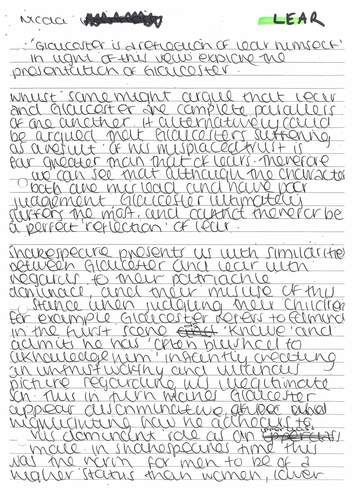 Nicola
LEAR
"Gloucester is a reflection of Lear himself"
In light of this view explore the
presentation of Gloucester.
Whilst some might argue that Lear
and Gloucester are complete parallels
of one another. It alternatively could
be argued that Gloucesters suffering
as a result of his misplaced trust is
far greater than that of Lears. Therefore
we can see that although the characters
both are mislead and have poor
judgement Gloucester ultimately
suffers the most. and cannot therefore be
a perfect 'reflection' of Lear.
Shakespeare presents us with similarities
between Gloucester and Lear with
regards to their
dominace, and their misuse of this
stance when judging their children
for example Gloucester refers to Edmund
in the first scene 'Knave' and
admits he has 'often blushed to
aknowledge him' instantly creating
an untrustworthy and
picture regarding his illegitimate
son. This in turn makes Gloucester
appear discriminative
highlighting how he
his dominant role as an
male in shakespeares time this
was the norm for men to be of a
higher status than women, lower